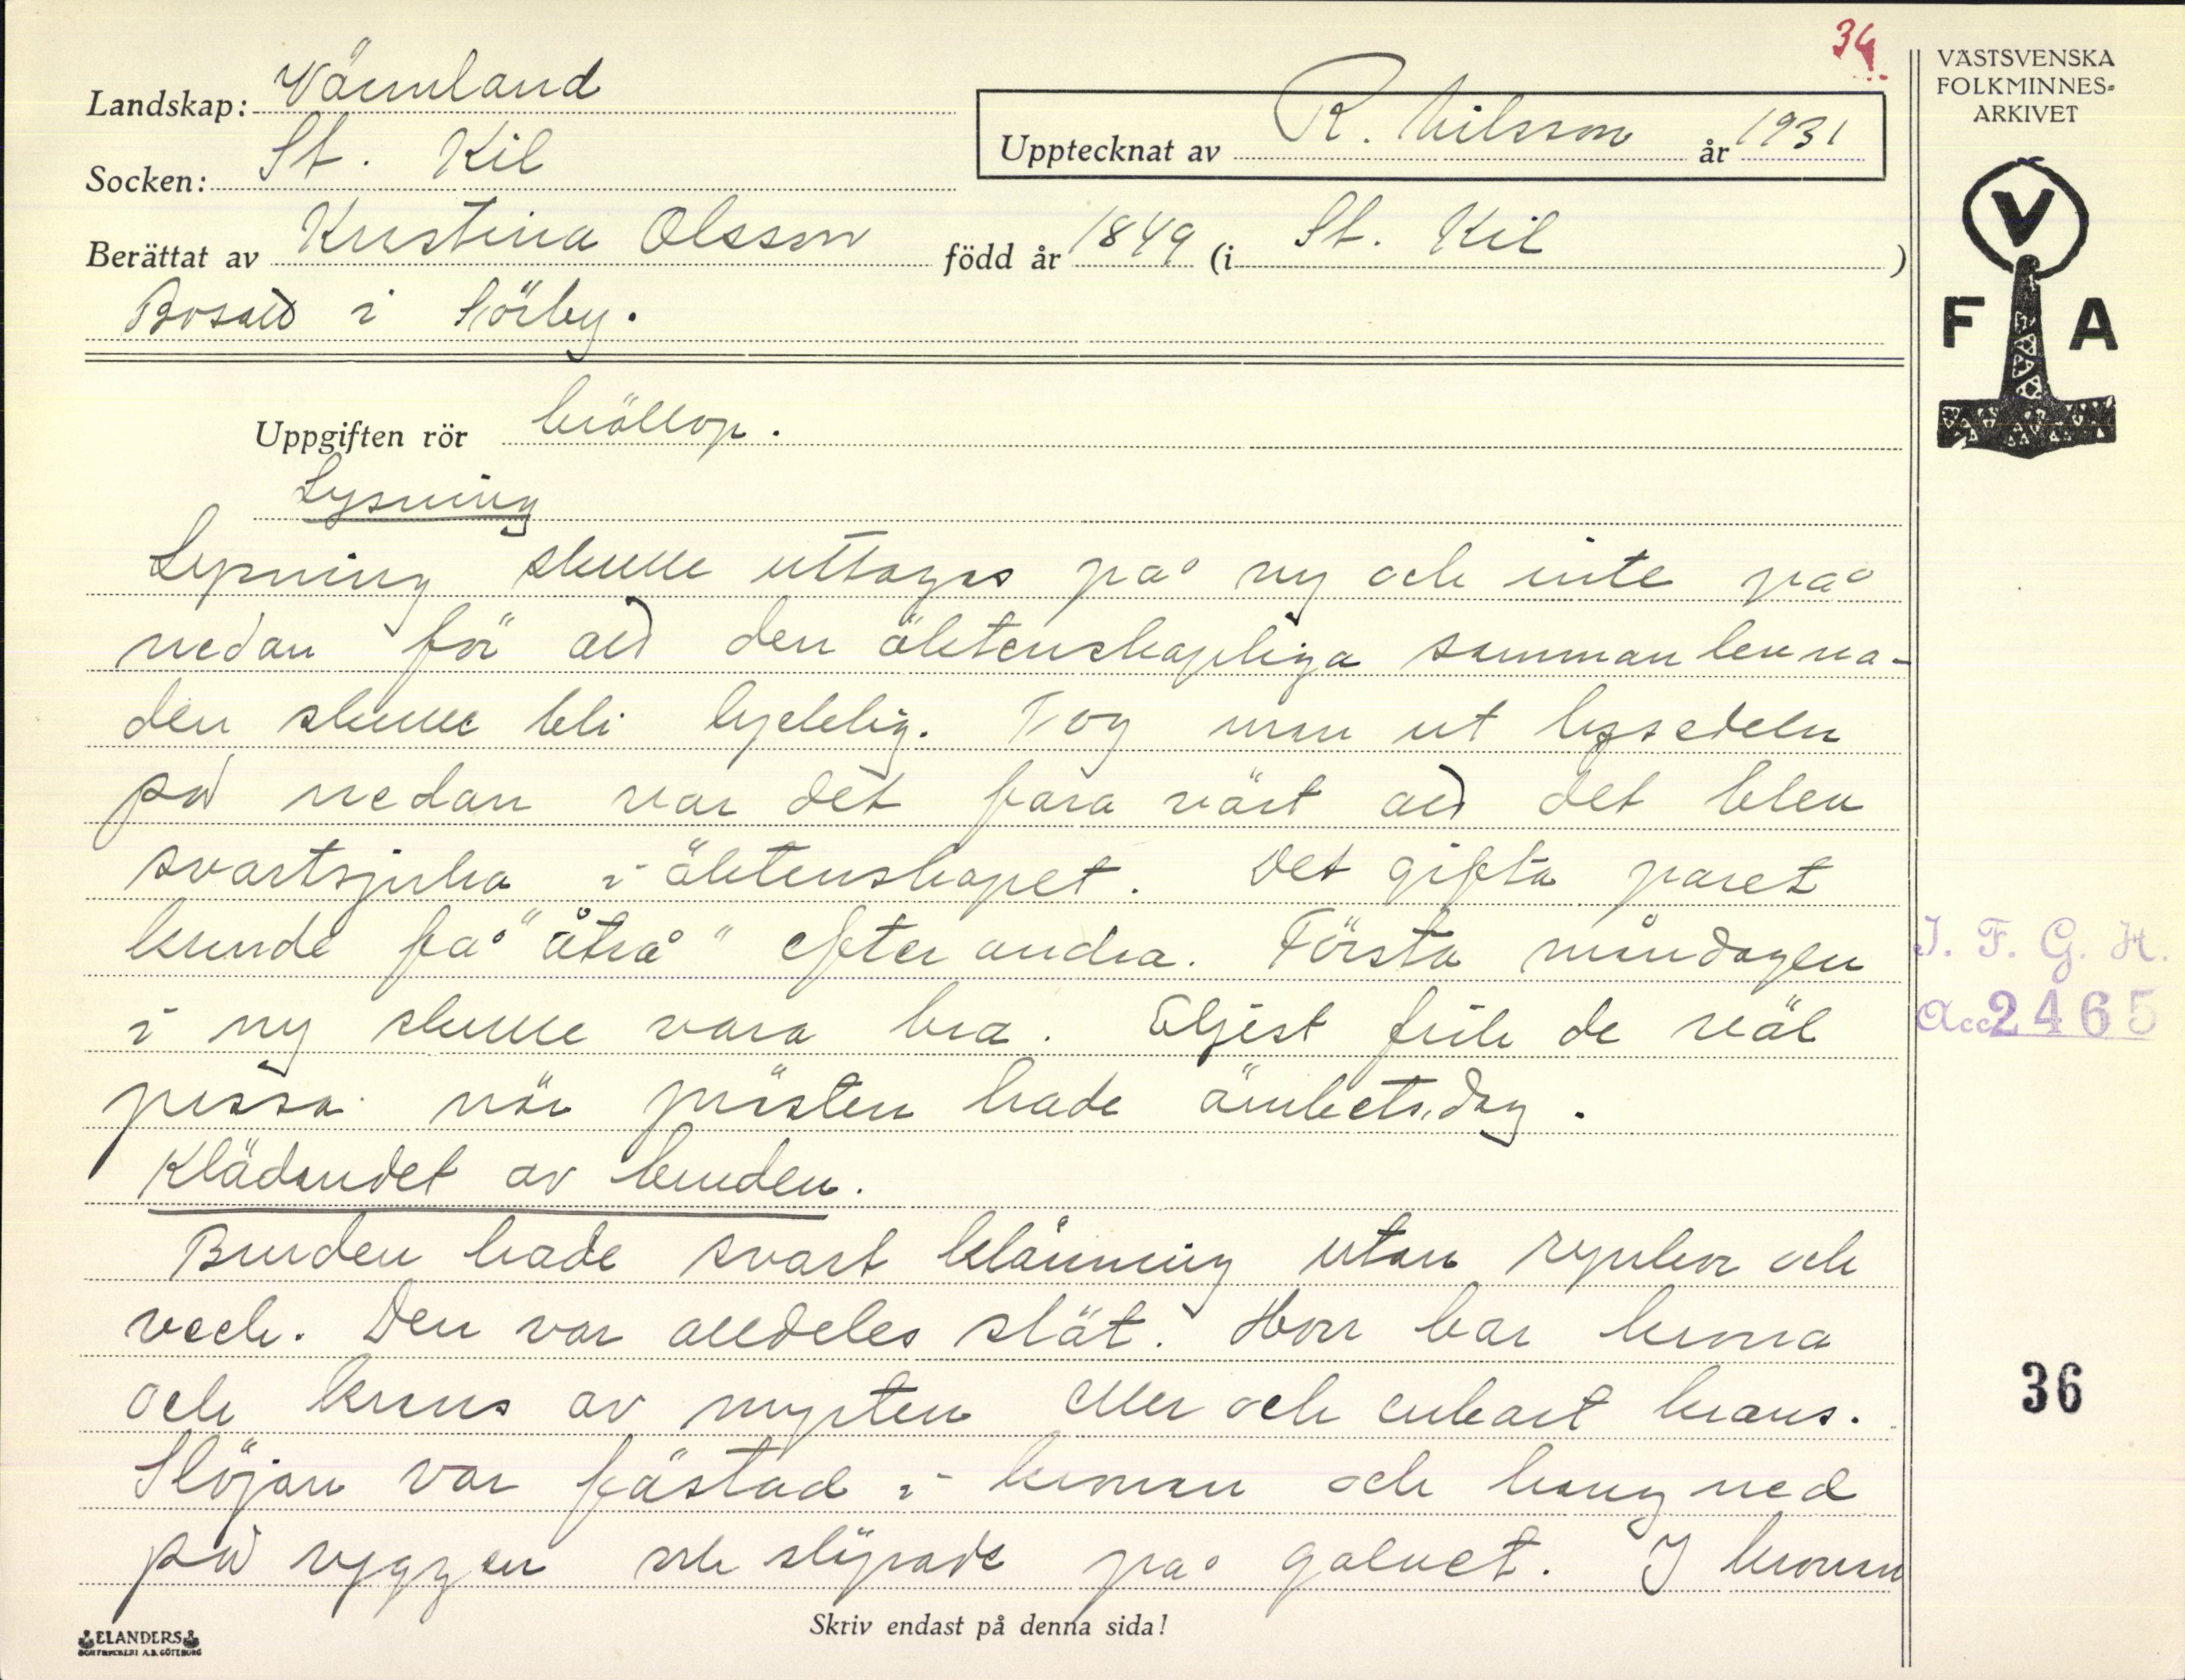 34
VÄSTSVENSKA
FOLKMINNES-
ARKIVET
Landskap: Värmland
Upptecknat av R. Nilsson år 1931
Socken: St. Kil
Berättat av Kristina Olsson född år 1849 (i St. Kil)
Bosatt i Sörby.
V
F A
Uppgiften rör bröllop.
Lysning
Lysning skulle uttagas på ny och inte på
nedan för att den äktenskapliga sammanlevna-
den skulle bli lycklig. Tog man ut lyssedeln
på nedan var det fara värt att det blev
svartsjuka i äktenskapet. Det gifta paret
kunde få "åtrå" efter andra. Första måndagen
i ny skulle vara bra. Eljest fick de väl
passa när prästen hade ämbetsdag.
Klädandet av bruden.
Bruden hade svart klänning utan rynkor och
veck. Den var alldeles slät. Hon bar krona
och krans av myrten eller och enbart krans.
Slöjan var fästad i kronan och hang ned
på ryggen och släpade på golvet. I kronan
I. F. G. H.
Acc 2465
36
ELANDERS
BOKTRYCKERI A.B. GÖTEBORG
Skriv endast på denna sida!